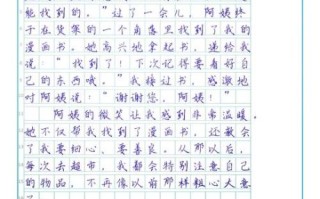 能找到的。”过了一会儿，阿姨终
于在货架的一个角落里找到了我的
漫画书。她高兴地拿起书，递给我
说：“找到了！下次记得要看好自
己的东西哦。”我接过书，感激地
对阿姨说：“谢谢您，阿姨！”
阿姨的微笑让我感到非常温暖。
她不仅帮我找到了漫画书，还教会
了我要细心，要善良。从那以后，
每次去超市，我都会特别注意自己
的物品，不再像以前那样粗心大意
了。